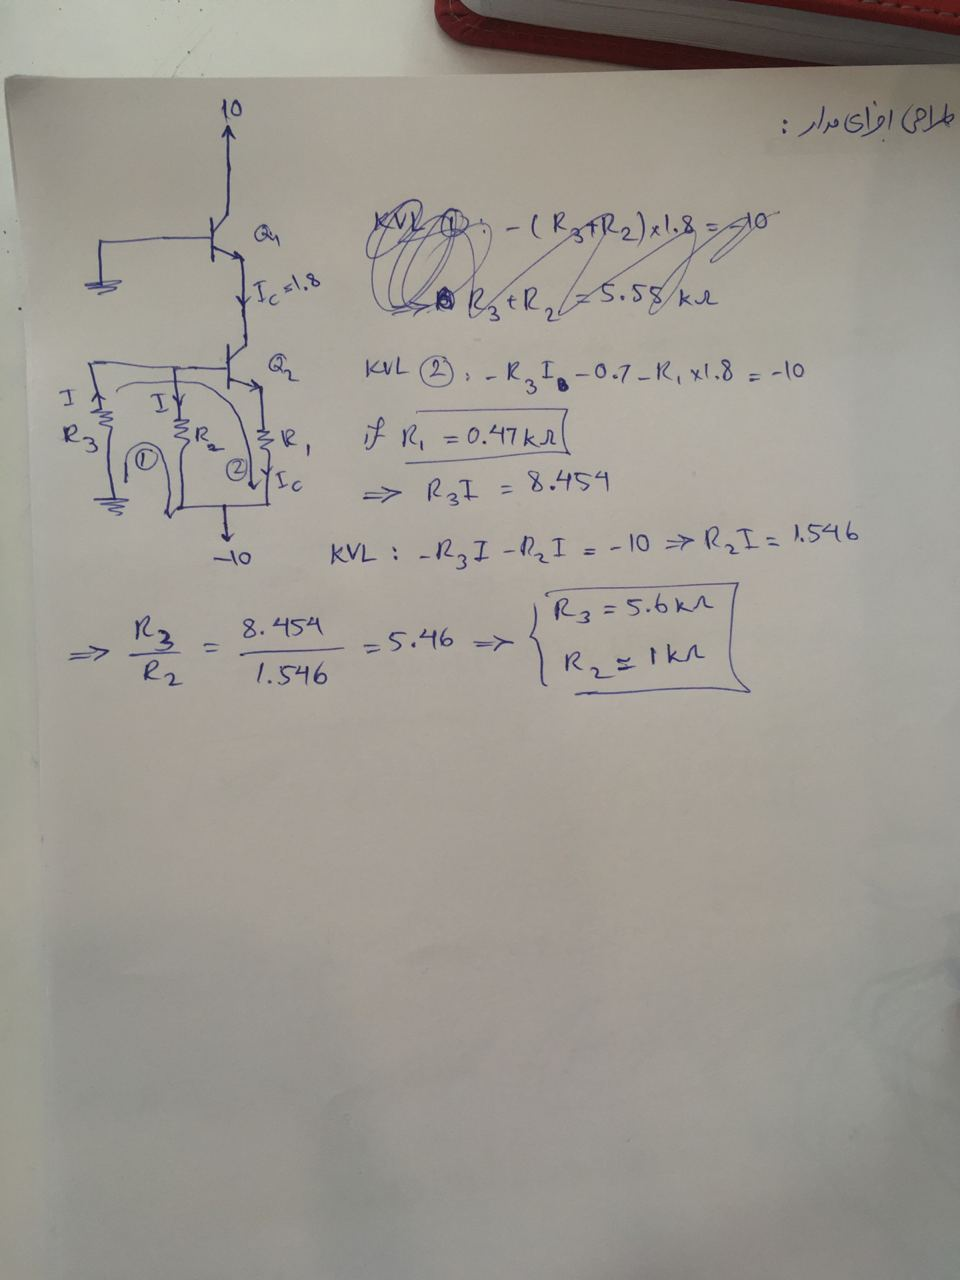 طراحی اجزای مدار :
10
Q₁
I_C = 1.8
Q₂
I
I
R₃
R₂
R₁
①
②
I_C
-10
KVL ① : -(R₃+R₂)×1.8 = -10
⇒ R₃+R₂ = 5.58 kΩ
KVL ② : -R₃I -0.7-R₁×1.8 = -10
if R₁ = 0.47kΩ
⇒ R₃I = 8.454
KVL : -R₃I -R₂I = -10 ⇒ R₂I = 1.546
⇒ R₃/R₂ = 8.454/1.546 = 5.46 ⇒ { R₃ = 5.6kΩ
R₂ = 1kΩ